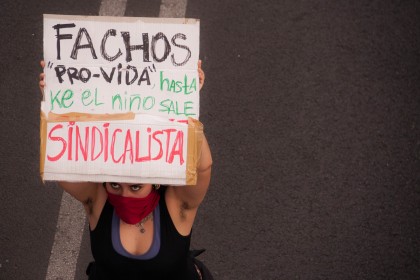 FACHOS
"PRO-VIDA" hasta
ke el niño SALE
SINDICALISTA